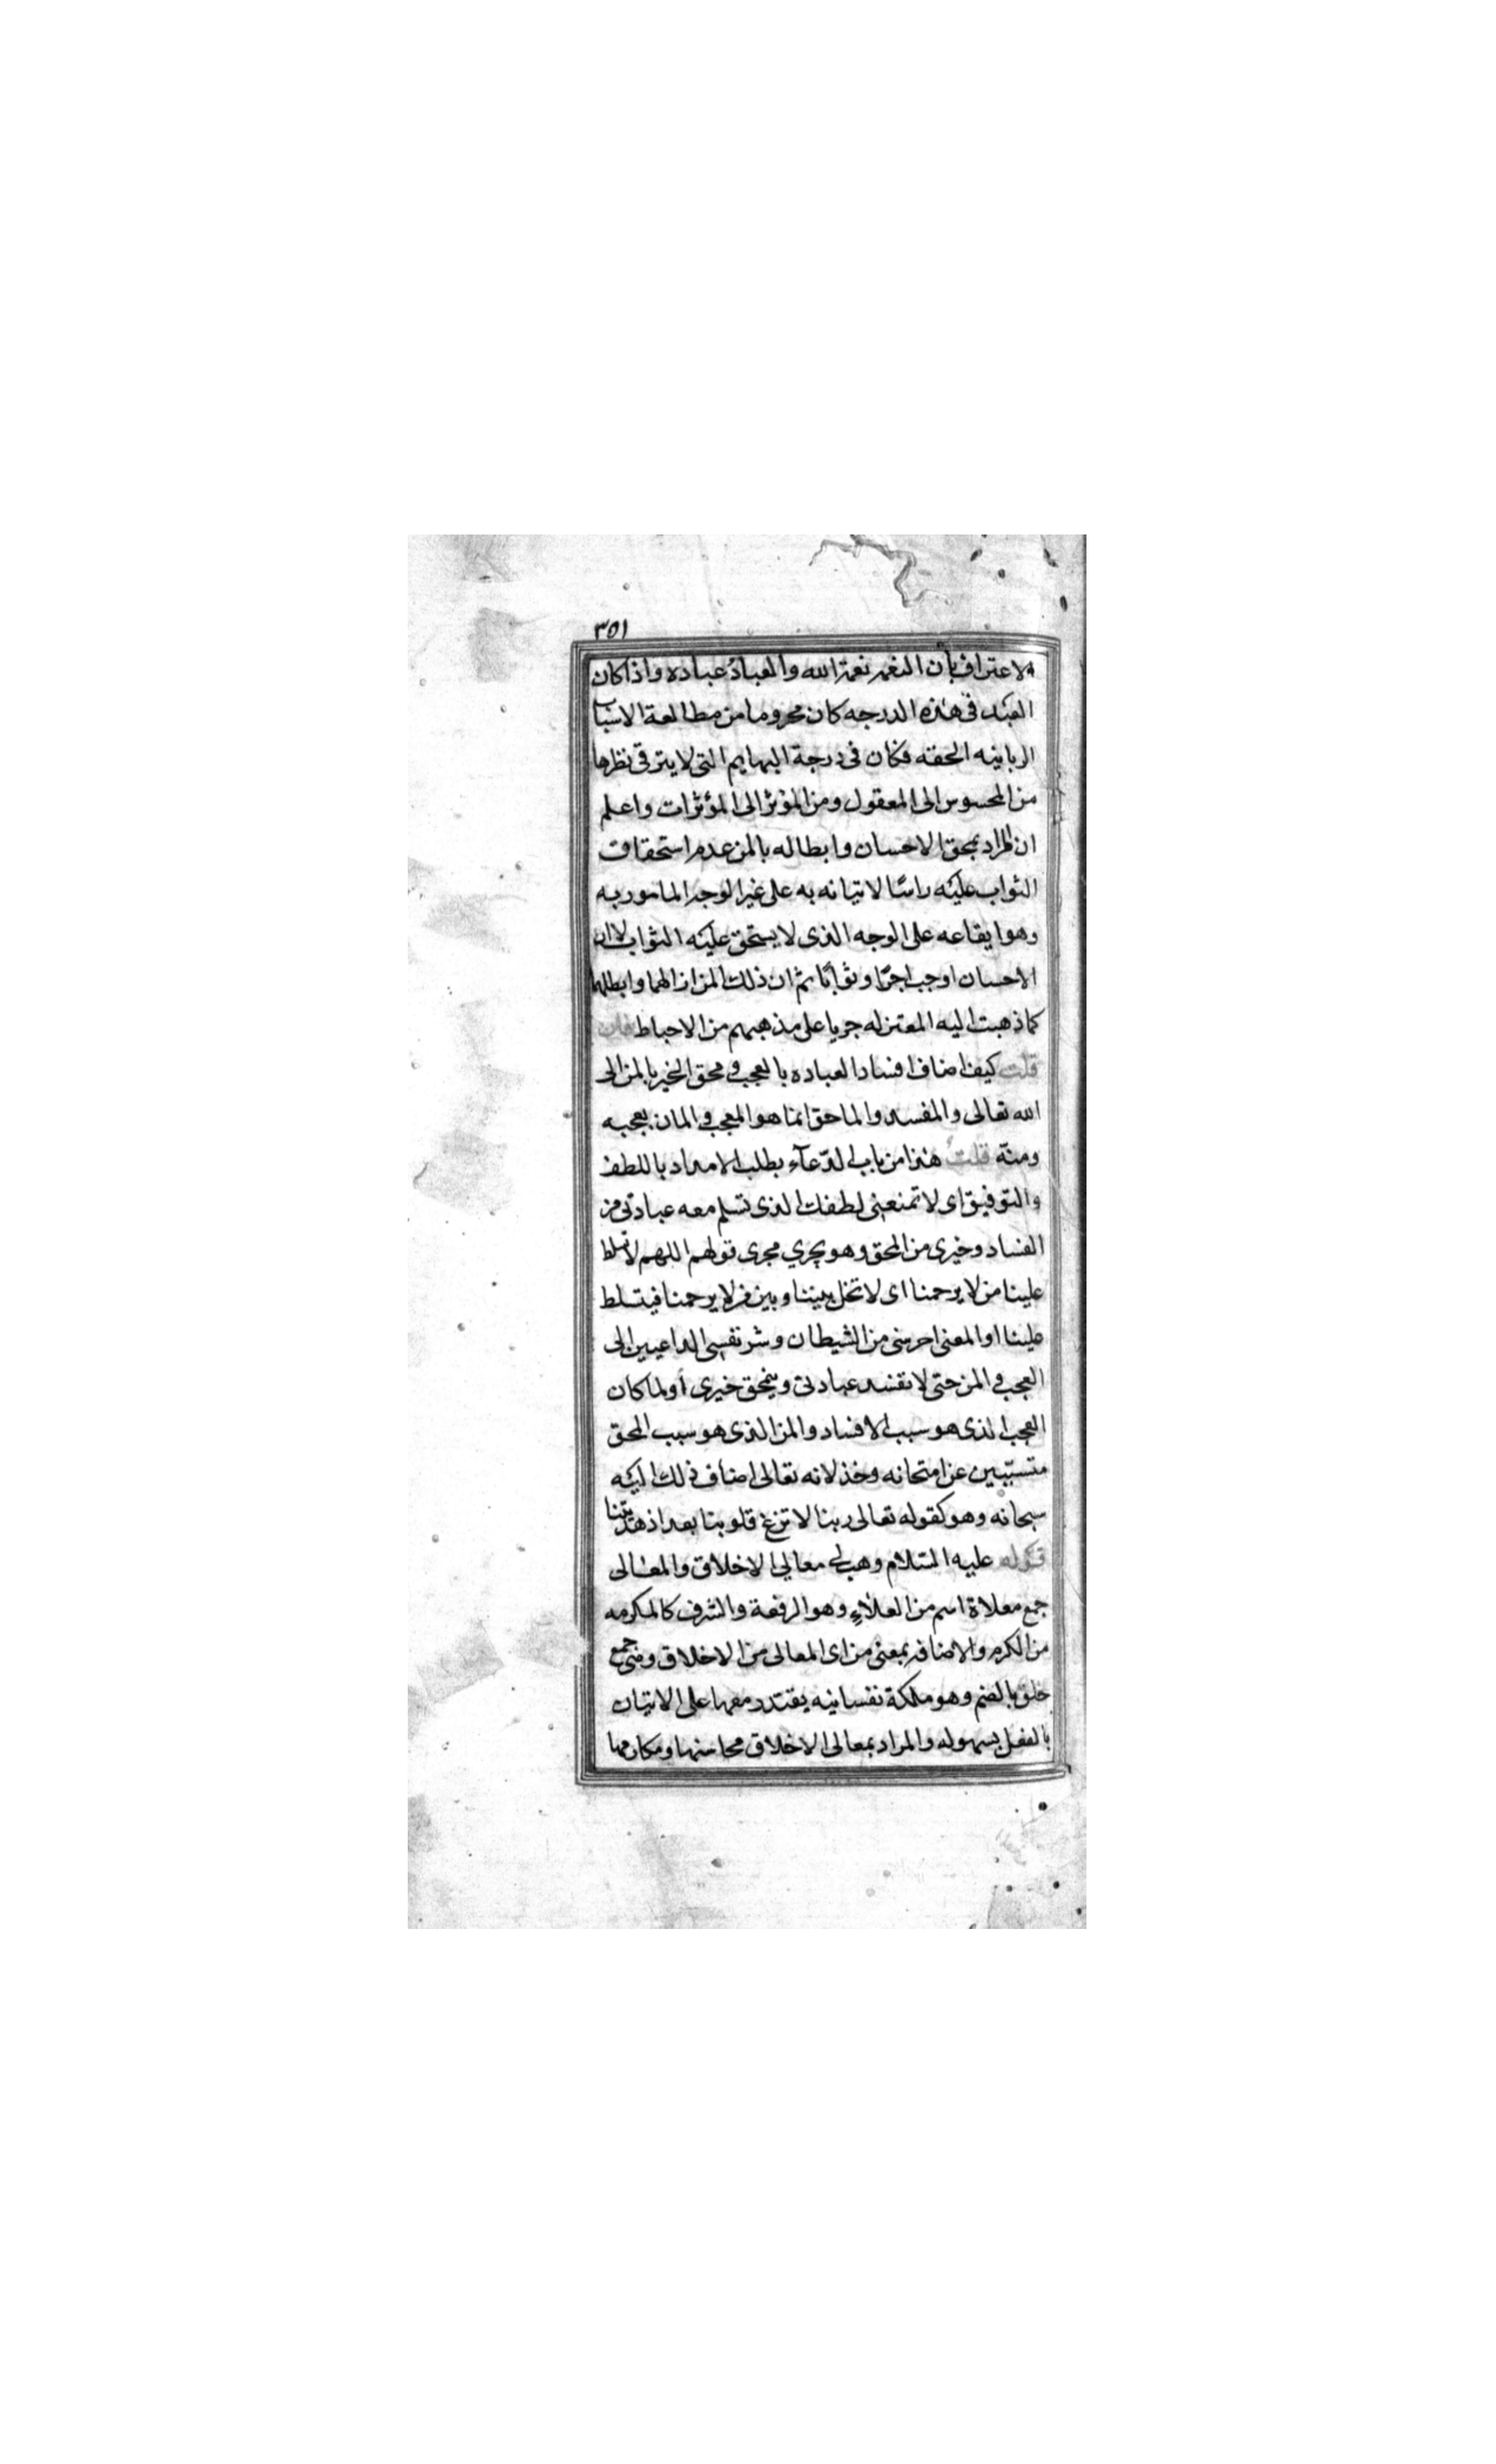 ٣٥١
الاعتراف بأن النعم نعمة الله والعبادُ عباده واذا كان
العبد فى هذه الدرجه كان محروما من مطالعة الاسباب
الربانيه الحقه فكان فى درجة البهايم التى لا يترقى نظرها
من المحسوس الى المعقول ومن المؤثر الى المؤثرات واعلم
ان المراد بمحق الاحسان وابطاله بالمن عدم استحقاق
الثواب عليه راسًا لاتيانه به على غير الوجه المامور به
وهو ايقاعه على الوجه الذى لا يستحق عليه الثواب لا ان
الاحسان اوجب اجرًا وثوابًا ثم ان ذلك المن ازالهما وابطلهما
كما ذهبت اليه المعتزله جريا على مذهبهم من الاحباط فان
قلت كيف اضاف افساد العباده بالعجب و محق الخير بالمن الى
الله تعالى والمفسد والماحق انما هو المعجب و المان بعجبه
ومنّه قلتُ هذا من باب الدّعآء بطلب الامداد باللطف
والتوفيق اى لا تمنعنى لطفك الذى تسلم معه عبادتى من
الفساد وخيرى من المحق وهو يجري مجرى قولهم اللهم لا تسلط
علينا من لا يرحمنا اى لا تخل بيننا وبين من لا يرحمنا فيتسلط
علينا او المعنى احرسنى من الشيطان وشر نفسى الداعيين الى
العجب و المن حتى لا تفسد عبادتى وينمحق خيرى أو لما كان
العجب الذى هو سبب الافساد والمن الذى هو سبب المحق
متسبّبين عن امتحانه وخذلانه تعالى اضاف ذلك اليه
سبحانه وهو كقوله تعالى ربنا لا تزغ قلوبنا بعد اذ هديتنا
قوله عليه السّلام وهب لى معالي الاخلاق والمعالى
جمع معلاة اسم من العلاءِ وهو الرفعة والشرف كالمكرمه
من الكرم والاضافه بمعنى من اى المعالى من الاخلاق وهى جمع
خلق بالضم وهو ملكة نفسانيه يقتدر معها على الاتيان
بالفعل بسهوله والمراد بمعالى الاخلاق محاسنها ومكارمها